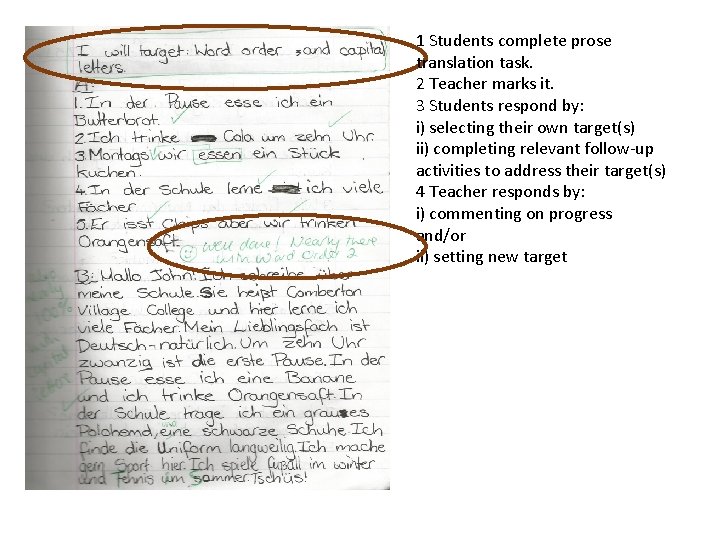 I will target: Word order , and capital
letters.
A:
1. In der Pause esse ich ein
Butterbrot.
2. Ich trinke Cola um zehn Uhr.
3. Montags wir essen ein Stück
kuchen.
4. In der Schule lerne ich viele
Fächer
5. Er isst Chips aber wir trinken
Orangensaft.
Well done! Nearly there
with word order 2
B: Hallo John! Ich schreibe über
meine Schule. Sie heißt Comberton
Village College und hier lerne ich
viele Fächer. Mein Lieblingsfach ist
Deutsch - natürlich. Um zehn Uhr
zwanzig ist die erste Pause. In der
Pause esse ich eine Banane
und ich trinke Orangensaft. In
der Schule trage ich ein graues
Polohemd, eine schwarze Schuhe. Ich
finde die Uniform langweilig. Ich mache
gern Sport hier. Ich spiele fußall im winter
und Tennis um Sommer. Tschüs!
1 Students complete prose
translation task.
2 Teacher marks it.
3 Students respond by:
i) selecting their own target(s)
ii) completing relevant follow-up
activities to address their target(s)
4 Teacher responds by:
i) commenting on progress
and/or
ii) setting new target